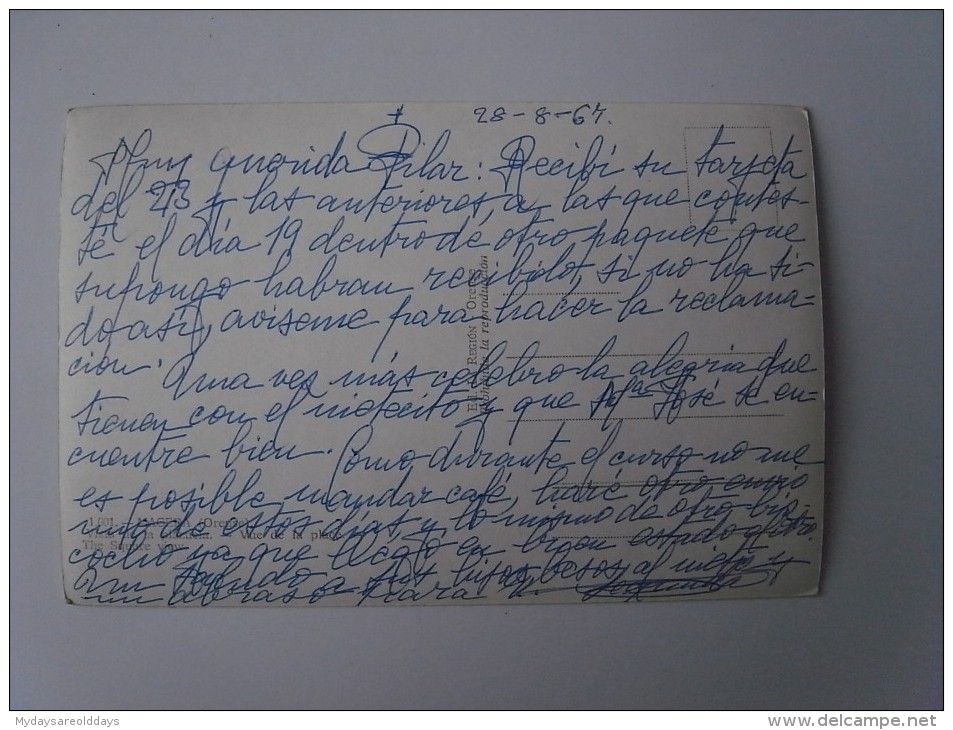 28-8-67.
Muy querida Pilar: Recibí su tarjeta
del 23 y las anteriores a las que contes-
té el día 19 dentro de otro paquete que
supongo habran recibido, si no ha si-
do así, aviseme para hacer la reclama-
ción. Una vez más celebro la alegria que
tienen con el nietecito y que Mª José se en-
cuentre bien. Como durante el curso no me
es posible mandar café, haré otro envio
uno de estos días, y lo mismo de otro
ya que llegó en buen estado el otro
Un saludo a sus hijos, besos al nieto y
un abrazo para V.
Ed. REGIÓN - Orense
Prohibida la reproducción
1.001. - MACEDA (Orense)
Vue de la place
The Square view
Mydaysareolddays
www.delcampe.net